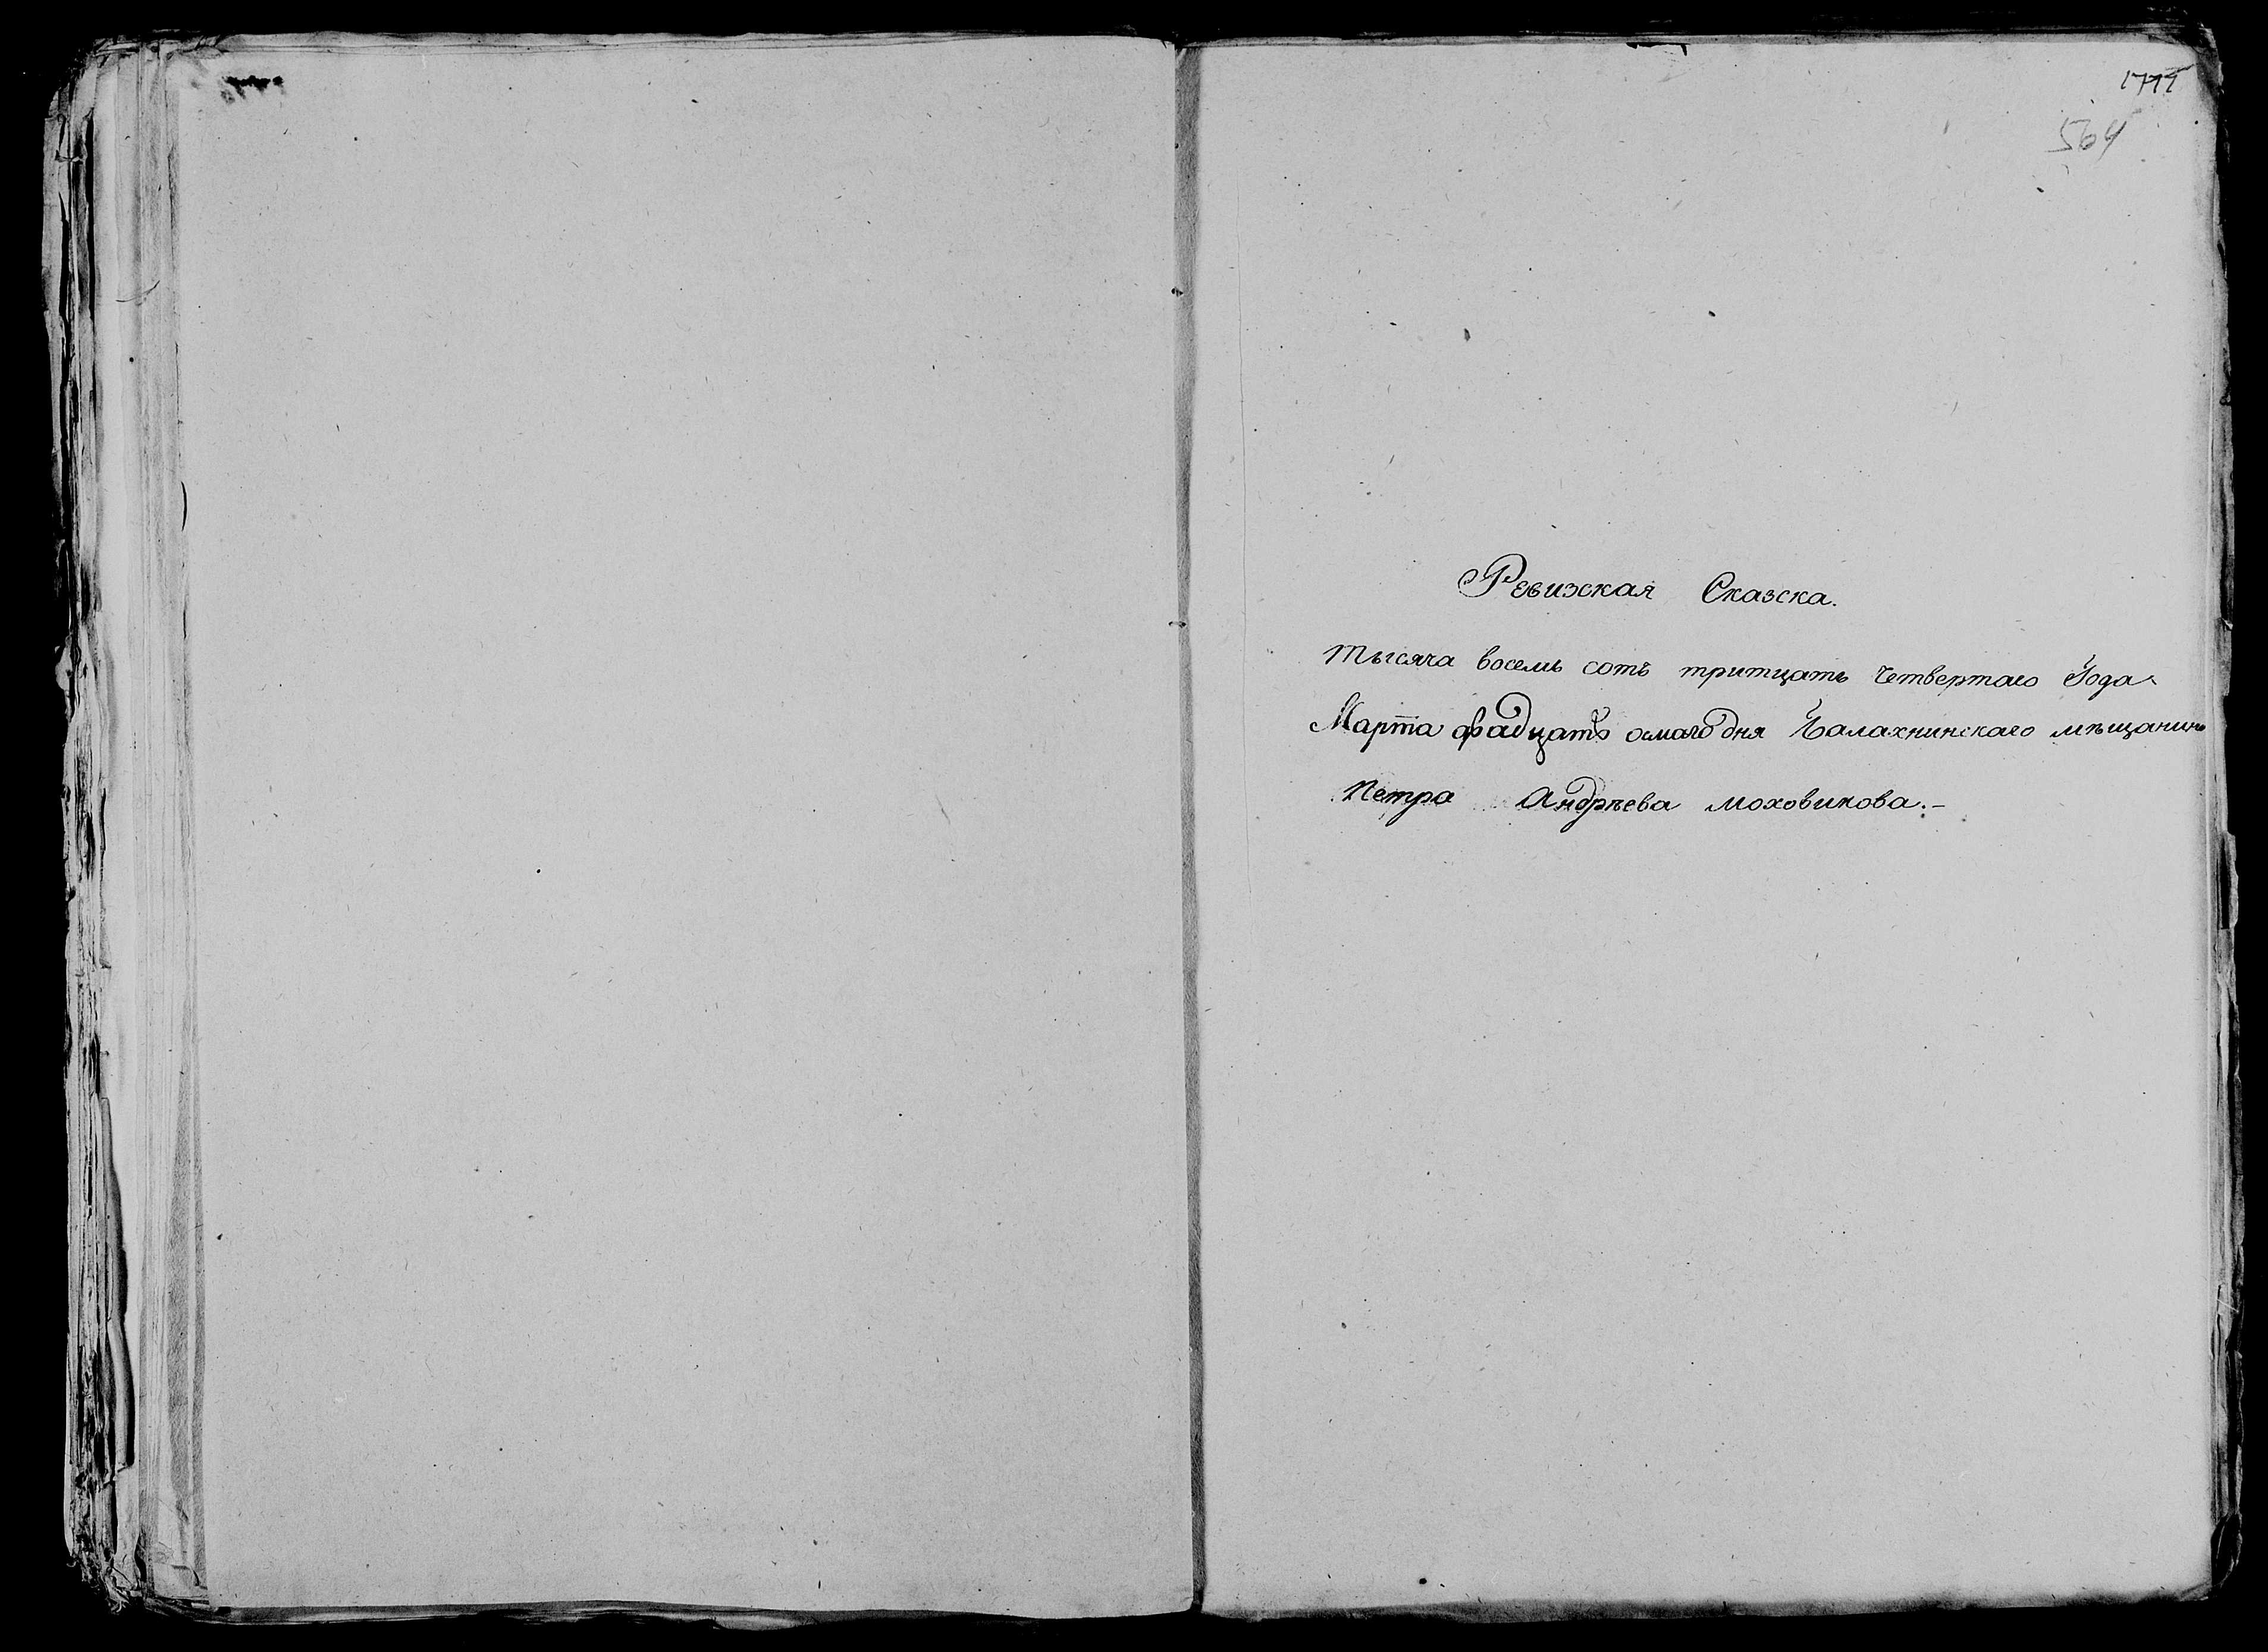 564
Ревизская Сказска.
тысяча восемь сотъ тритцать четвертаго Года
Марта двадцать осмаго дня Балахнинскаго мѣщанина
Петра Андрѣева моховикова.-